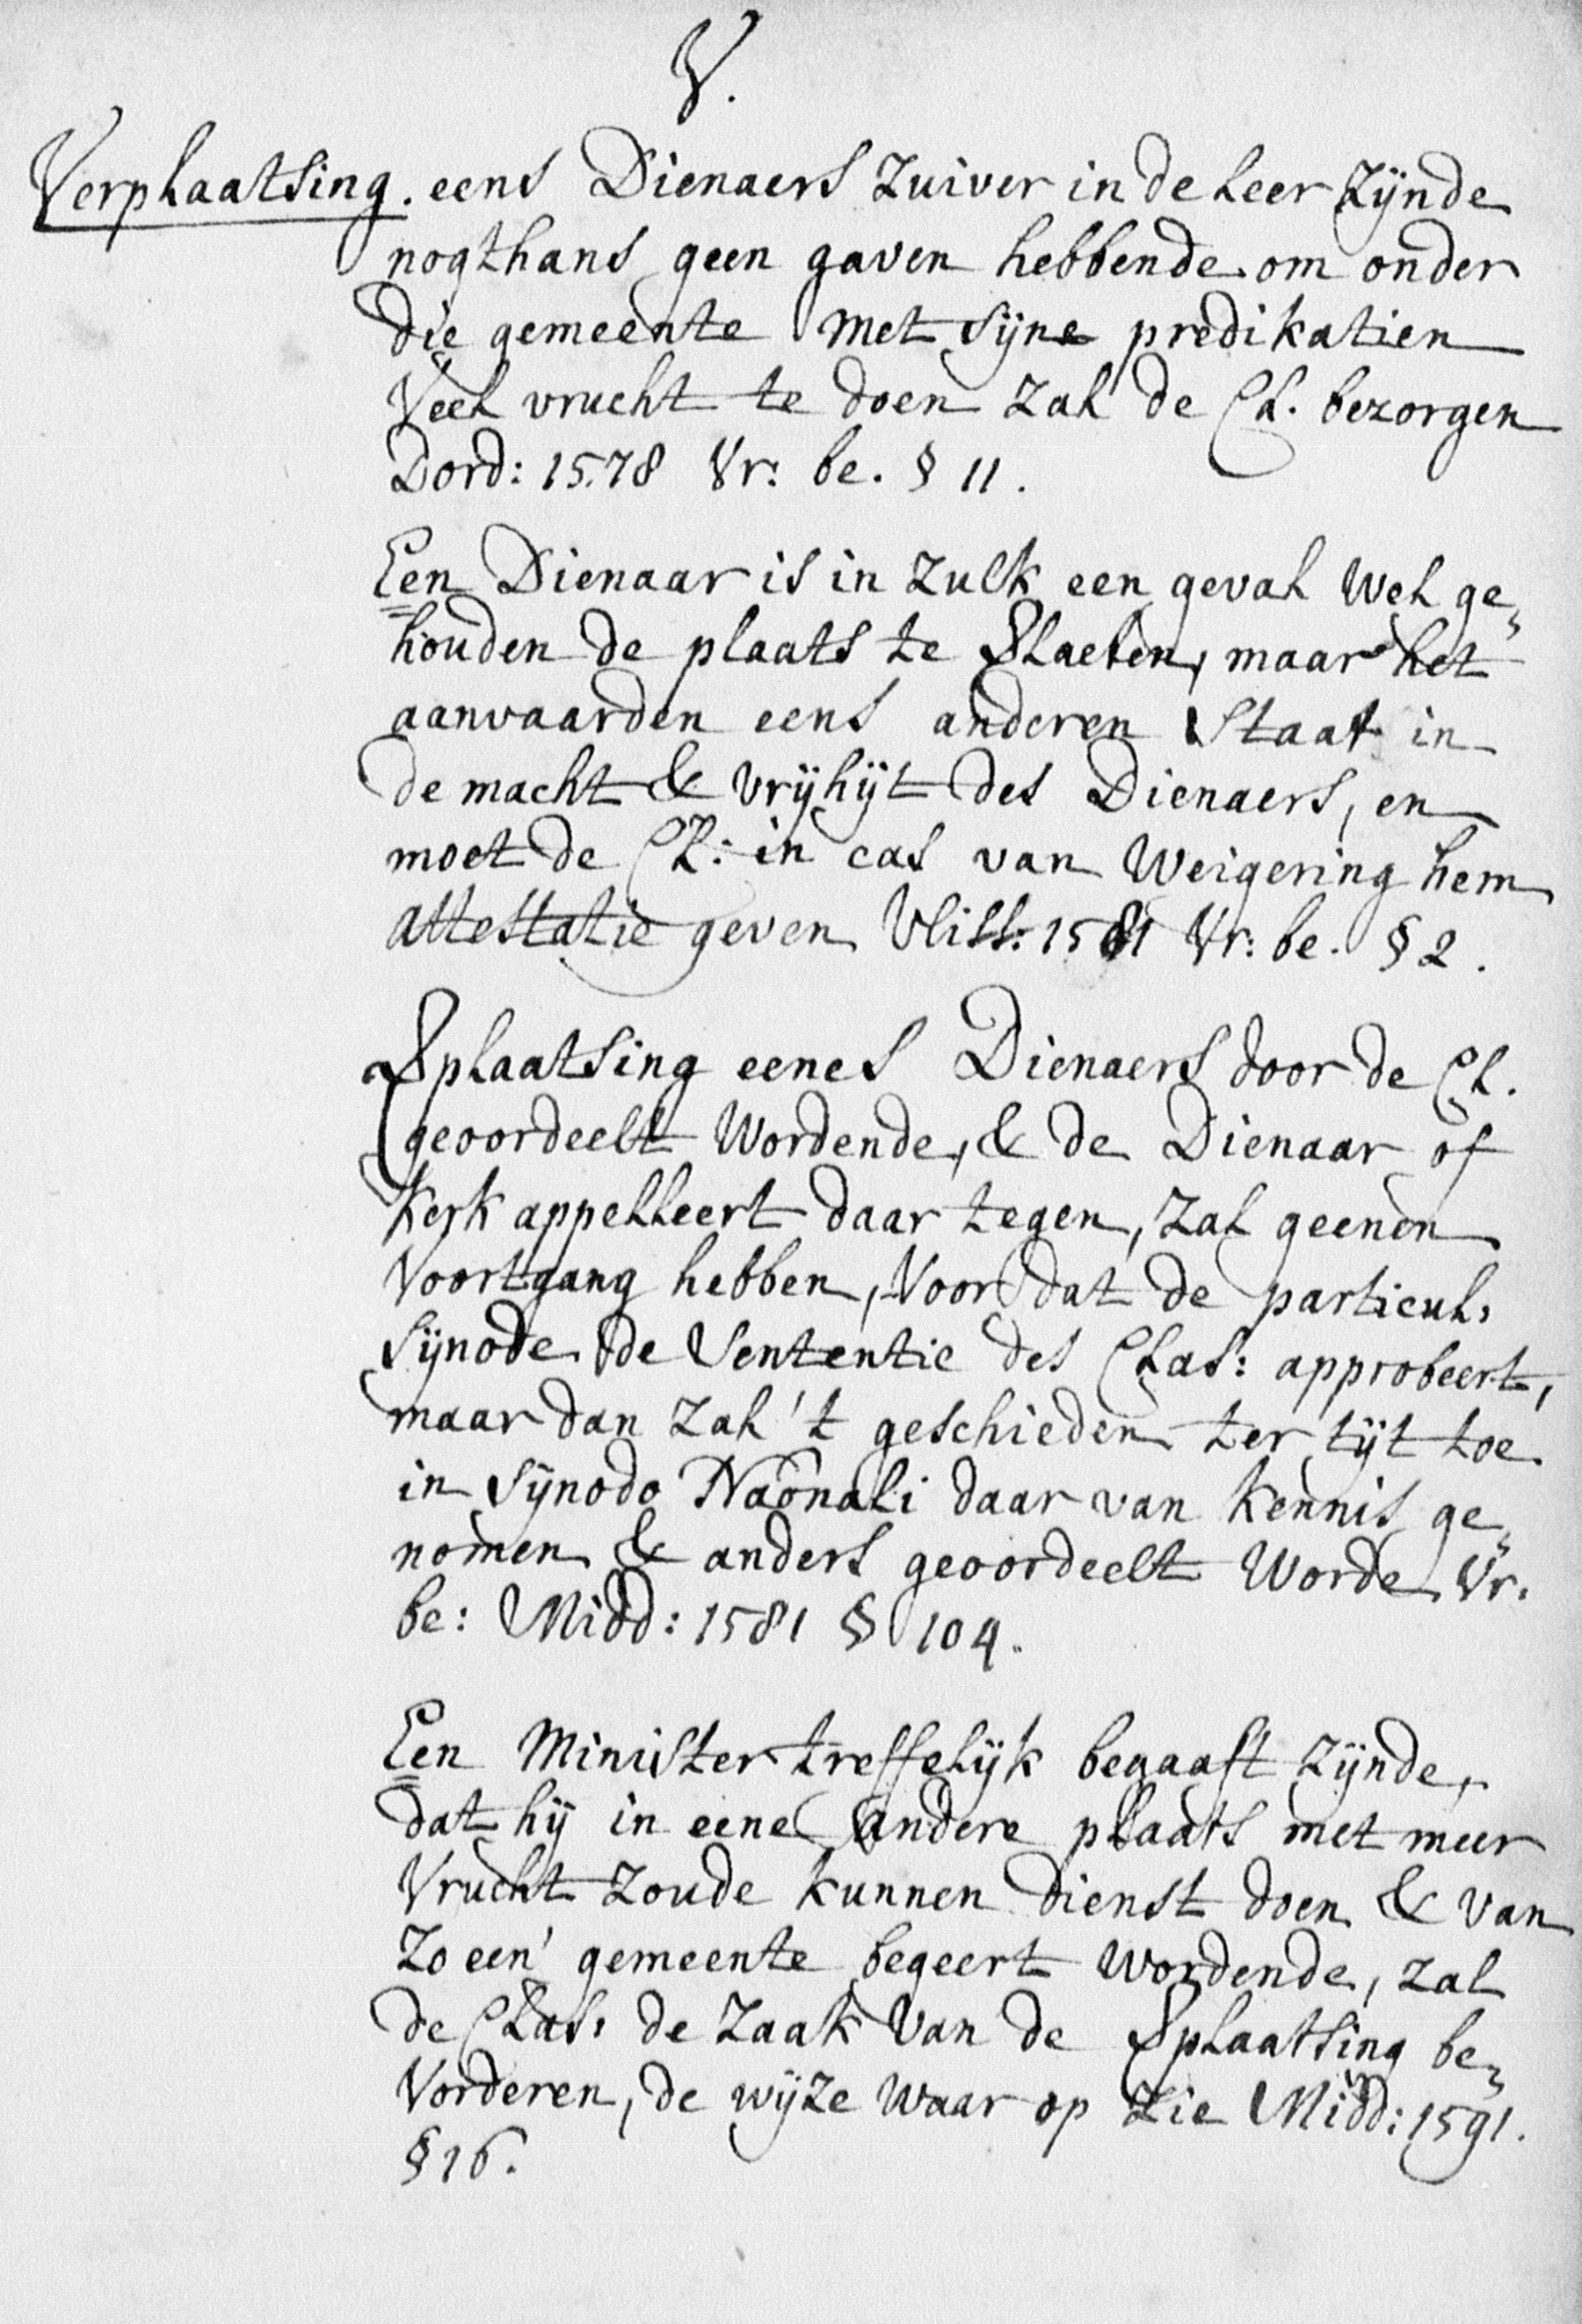 V.
Verplaatsing. eens Dienaers zuiver in de leer zÿnde
nogthans geen gaven hebbende om onder
die gemeente met sÿne predikatien
Veel vrucht te doen zal de Cl. bezorgen
Dord: 1578 Vr: be. § 11.
Een Dienaar is in zulk een geval wel ge„
houden de plaats te Vlaeten, maar het
aanvaarden eens anderen Staat in
de macht & vrÿhÿt des Dienaers, en
moet de Cl: in cas van Weigering hem
attestatie geven Vliss: 1581 Vr: be. § 2.
Vplaatsing eenes Dienaers door de Cl.
geoordeelt Wordende, & de Dienaar of
Kerk appelleert daar tegen, zal geenen
Voortgang hebben, Voor dat de particul.
Sÿnode de Sententie des Clas: approbeert,
maar dan zal 't geschieden ter tÿt toe
in Sÿnodo Naõnali daar van kennis ge„
nomen & anders geoordeelt Worde Vr.
be: Midd: 1581 § 104.
Een Minister treffelÿk begaaft zÿnde,
dat hÿ in eene andere plaats met meer
Vrucht zoude kunnen dienst doen & van
zo een' gemeente begeert wordende, zal
de Clas. de zaak van de Vplaatsing be„
Vorderen, de wÿze waar op zie Midd: 1591.
§ 16.